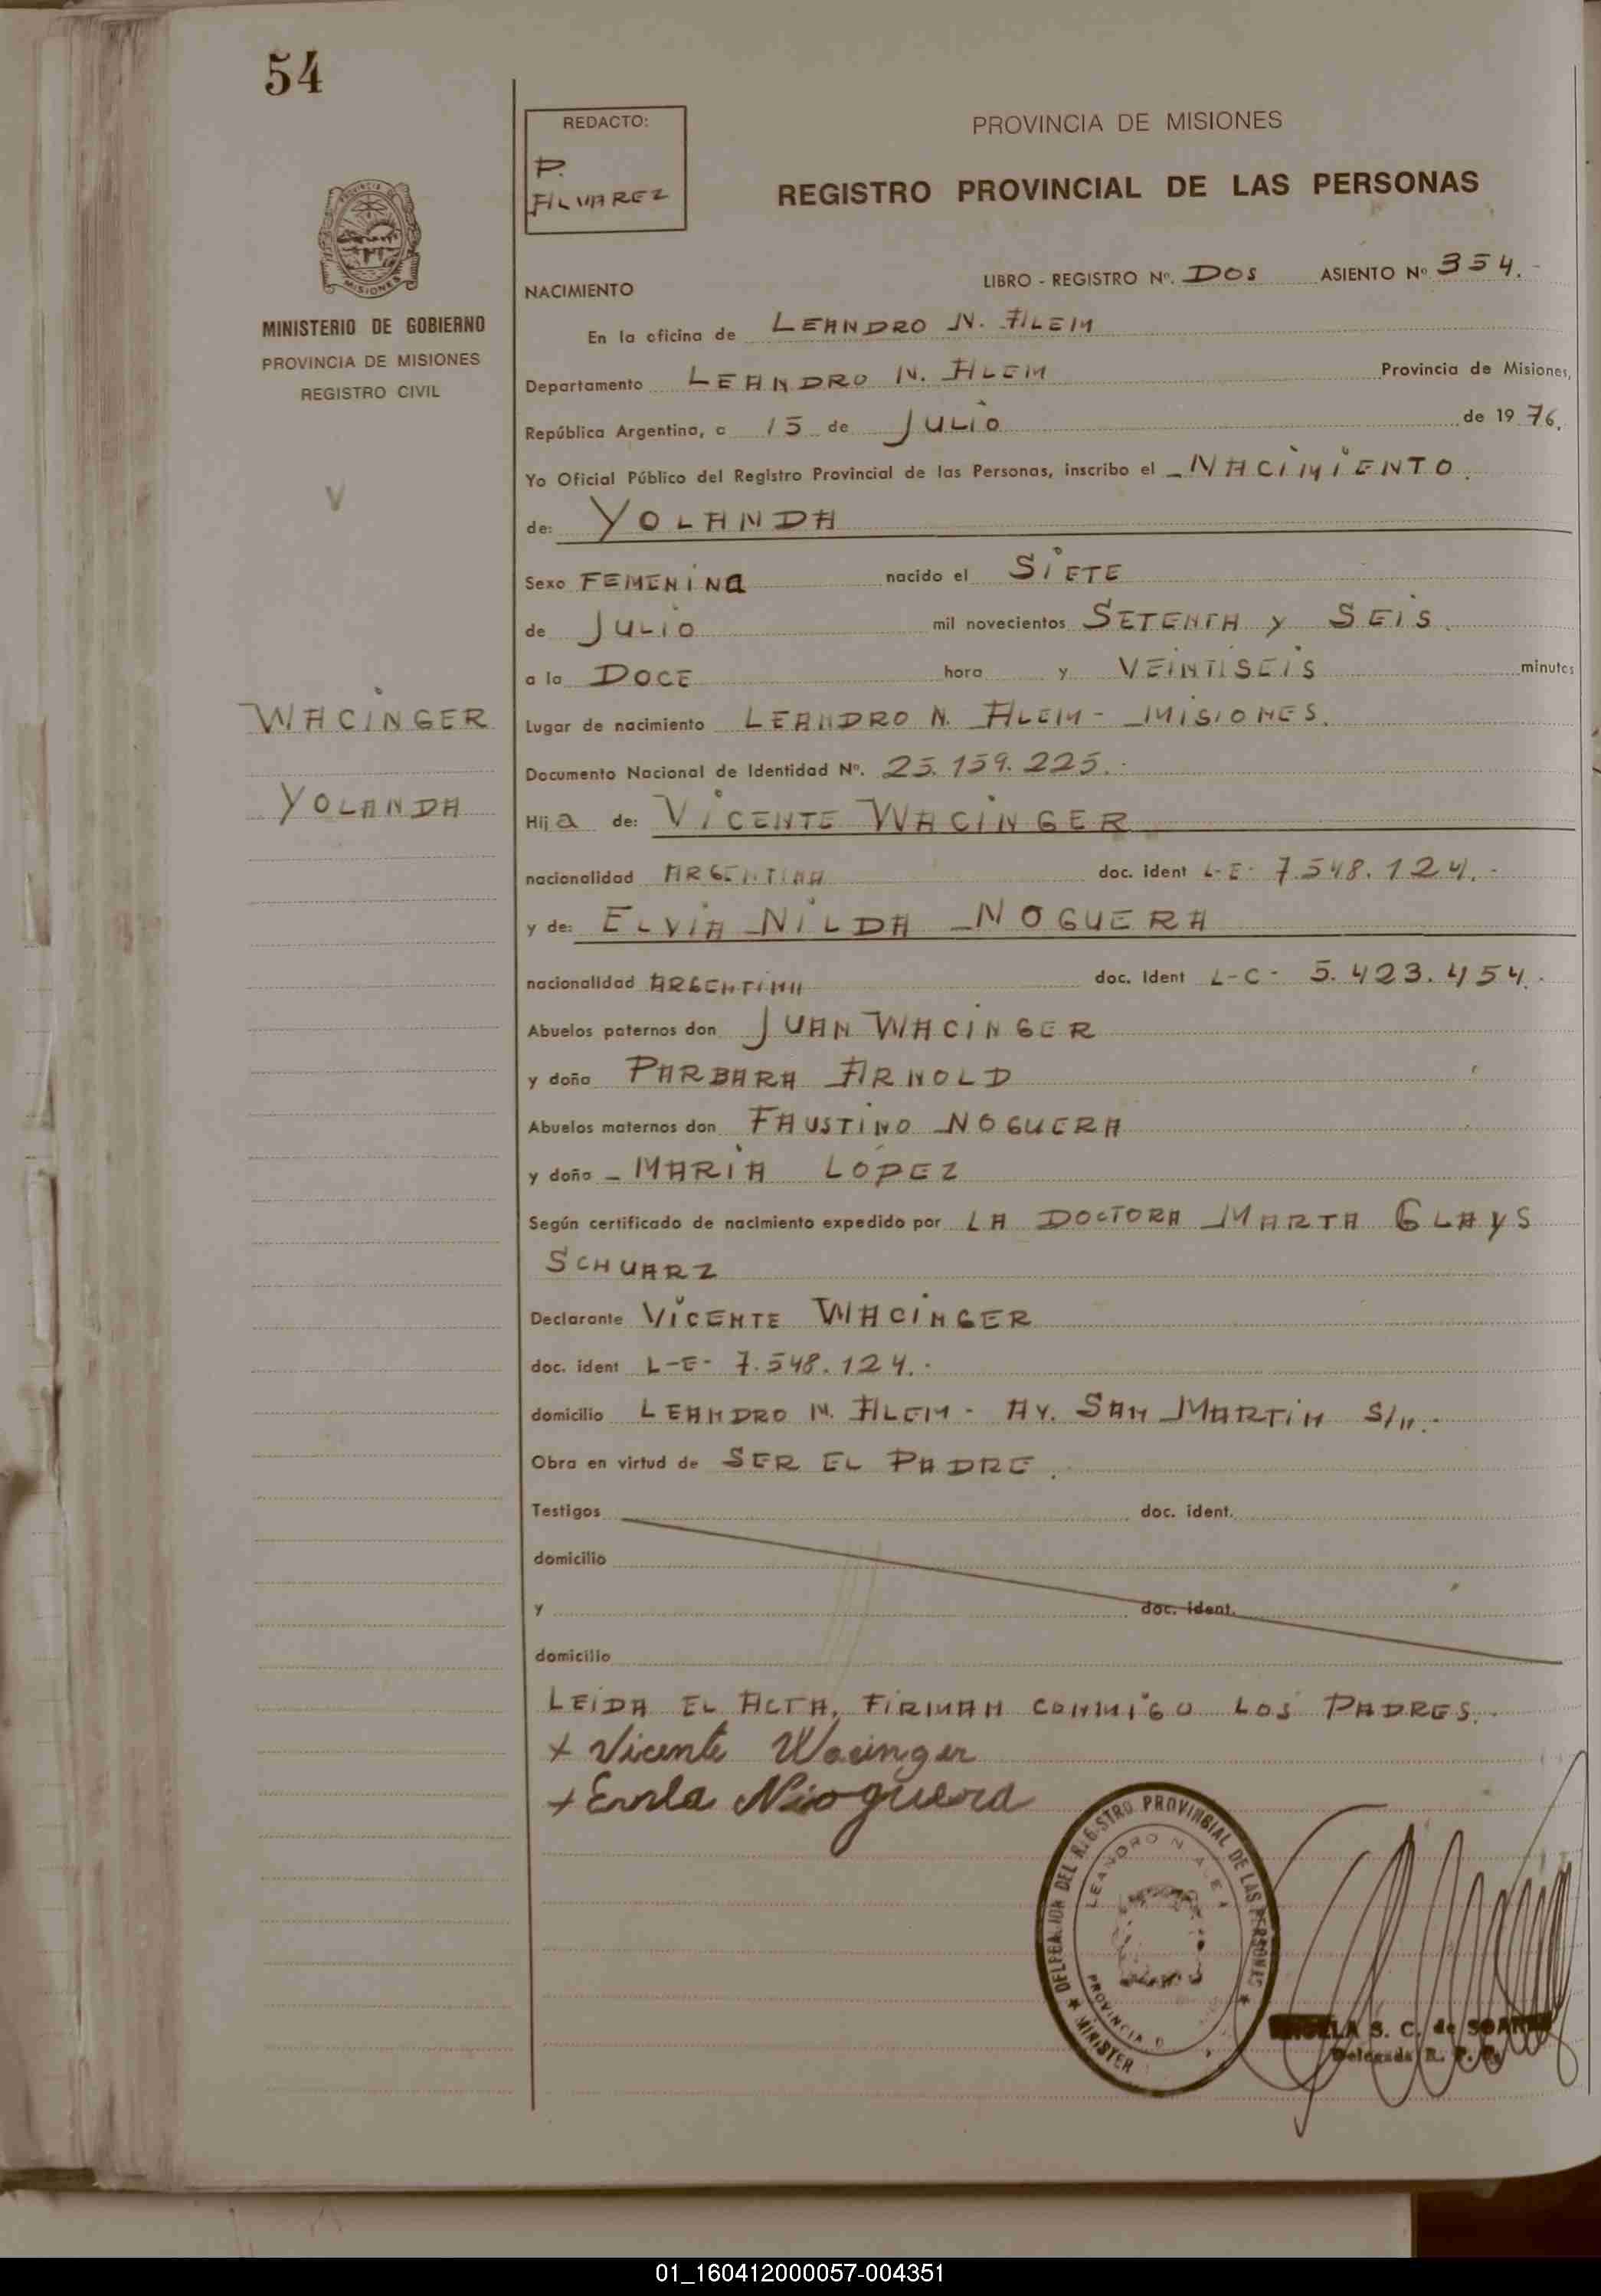 54
REDACTO:
P.
ALVAREZ
PROVINCIA DE MISIONES
REGISTRO PROVINCIAL DE LAS PERSONAS
MISIONES
MINISTERIO DE GOBIERNO
PROVINCIA DE MISIONES
REGISTRO CIVIL
V
NACIMIENTO LIBRO - REGISTRO Nº. DOS ASIENTO Nº 354.-
En la oficina de LEANDRO N. ALEM
Departamento LEANDRO N. ALEM Provincia de Misiones,
República Argentina, a 15 de JULIO de 1976.
Yo Oficial Público del Registro Provincial de las Personas, inscribo el NACIMIENTO.
de: YOLANDA
Sexo FEMENINa nacido el SIETE
de JULIO mil novecientos SETENTA Y SEIS.
a la DOCE hora y VEINTISEIS minutos
WACINGER
YOLANDA
Lugar de nacimiento LEANDRO N. ALEM - MISIONES.
Documento Nacional de Identidad Nº. 25.159.225.-
Hija de: VICENTE WACINGER
nacionalidad ARGENTINA doc. ident L-E- 7.548.124.-
y de: ELVIA NILDA NOGUERA
nacionalidad ARGENTINA doc. Ident L-C- 5.423.454.-
Abuelos paternos don JUAN WACINGER
y doña PARBARA ARNOLD
Abuelos maternos don FAUSTINO NOGUERA
y doña MARIA LOPEZ
Según certificado de nacimiento expedido por LA DOCTORA MARTA GLAYS
SCHUARZ
Declarante VICENTE WACINGER
doc. ident L-E- 7.548.124.-
domicilio LEANDRO N. ALEM - AV. SAN MARTIN S/N.-
Obra en virtud de SER EL PADRE.
Testigos doc. ident.
domicilio
y doc. ident.
domicilio
LEIDA EL ACTA, FIRMAN CONMIGO LOS PADRES.-
+ Vicente Wacinger
+ Noguera
DELEGACION DEL REGISTRO PROVINCIAL DE LAS PERSONAS
LEANDRO N. ALEM
PROVINCIA D
MINISTER
S. C. de
Delegada R. P. P.
01_160412000057-004351